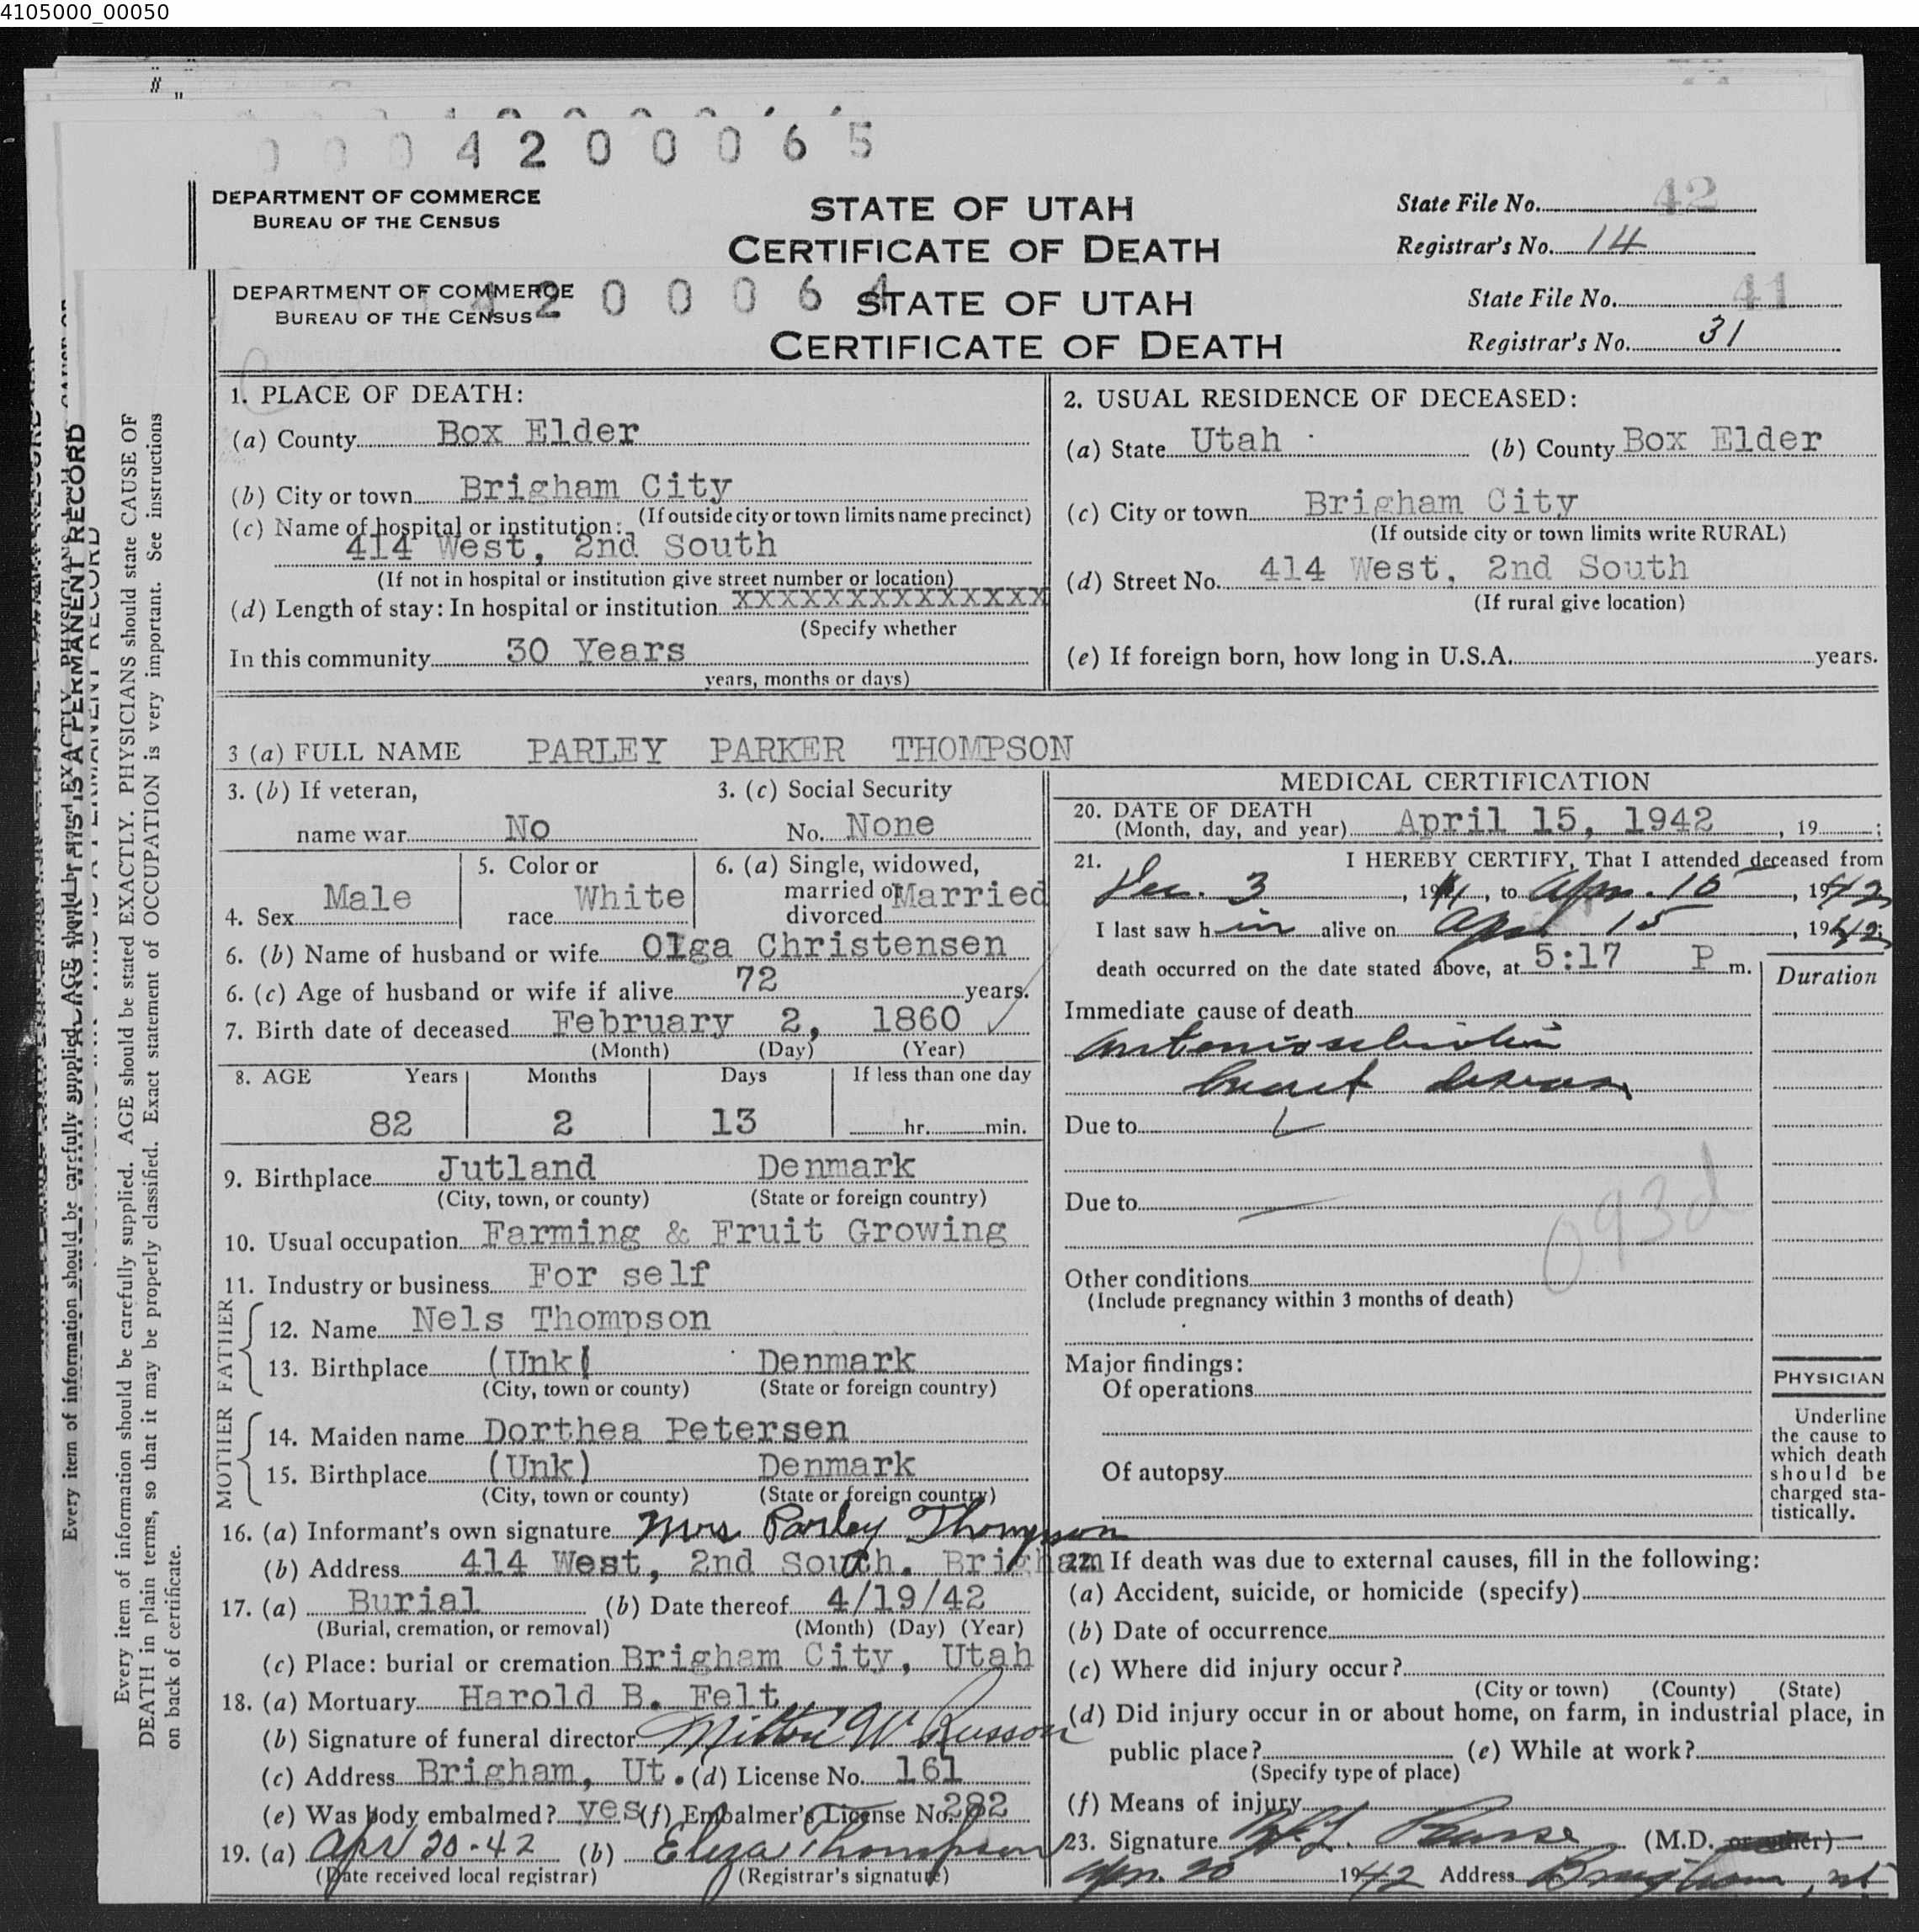 4105000_00050
0 0 0 4 2 0 0 0 6 5
DEPARTMENT OF COMMERCE
BUREAU OF THE CENSUS
STATE OF UTAH
CERTIFICATE OF DEATH
State File No. 42
Registrar's No. 14
4 2 0 0 0 6 4
DEPARTMENT OF COMMERCE
BUREAU OF THE CENSUS
STATE OF UTAH
CERTIFICATE OF DEATH
State File No. 41
Registrar's No. 31
1. PLACE OF DEATH:
(a) County Box Elder
(b) City or town Brigham City
(If outside city or town limits name precinct)
(c) Name of hospital or institution:
414 West, 2nd South
(If not in hospital or institution give street number or location)
(d) Length of stay: In hospital or institution XXXXXXXXXXXXXX
(Specify whether
In this community 30 Years
years, months or days)
2. USUAL RESIDENCE OF DECEASED:
(a) State Utah (b) County Box Elder
(c) City or town Brigham City
(If outside city or town limits write RURAL)
(d) Street No. 414 West, 2nd South
(If rural give location)
(e) If foreign born, how long in U.S.A. years.
3 (a) FULL NAME PARLEY PARKER THOMPSON
3. (b) If veteran,
name war No
3. (c) Social Security
No. None
4. Sex Male
5. Color or
race White
6. (a) Single, widowed,
married or
divorced Married
6. (b) Name of husband or wife Olga Christensen
6. (c) Age of husband or wife if alive 72 years.
7. Birth date of deceased February 2, 1860
(Month) (Day) (Year)
8. AGE Years Months Days If less than one day
82 2 13 hr. min.
9. Birthplace Jutland Denmark
(City, town, or county) (State or foreign country)
10. Usual occupation Farming & Fruit Growing
11. Industry or business For self
FATHER
12. Name Nels Thompson
13. Birthplace (Unk( Denmark
(City, town or county) (State or foreign country)
MOTHER
14. Maiden name Dorthea Petersen
15. Birthplace (Unk) Denmark
(City, town or county) (State or foreign country)
16. (a) Informant's own signature Mrs Parley Thompson
(b) Address 414 West, 2nd South. Brigham
17. (a) Burial (b) Date thereof 4/19/42
(Burial, cremation, or removal) (Month) (Day) (Year)
(c) Place: burial or cremation Brigham City, Utah
18. (a) Mortuary Harold B. Felt
(b) Signature of funeral director Milton W Russon
(c) Address Brigham, Ut. (d) License No. 161
(e) Was body embalmed? yes (f) Embalmer's License No. 282
19. (a) Apr 20-42 (b) Eliza Thompson
(Date received local registrar) (Registrar's signature)
MEDICAL CERTIFICATION
20. DATE OF DEATH
(Month, day, and year) April 15, 1942, 19 ;
21. I HEREBY CERTIFY, That I attended deceased from
Dec. 3, 1941, to Apr. 15, 1942
I last saw h im alive on Apr 15, 1942;
death occurred on the date stated above, at 5:17 P m.
Duration
Immediate cause of death
Arteriosclerotic
heart disease
Due to
Due to
093d
Other conditions
(Include pregnancy within 3 months of death)
Major findings:
Of operations
Of autopsy
PHYSICIAN
Underline
the cause to
which death
should be
charged sta-
tistically.
22. If death was due to external causes, fill in the following:
(a) Accident, suicide, or homicide (specify)
(b) Date of occurrence
(c) Where did injury occur?
(City or town) (County) (State)
(d) Did injury occur in or about home, on farm, in industrial place, in
public place? (e) While at work?
(Specify type of place)
(f) Means of injury
23. Signature (M.D. or other)
Apr. 20 1942 Address Brigham, Ut
Every item of information should be carefully supplied. AGE should be stated EXACTLY. PHYSICIANS should state CAUSE OF
DEATH in plain terms, so that it may be properly classified. Exact statement of OCCUPATION is very important. See instructions
on back of certificate.